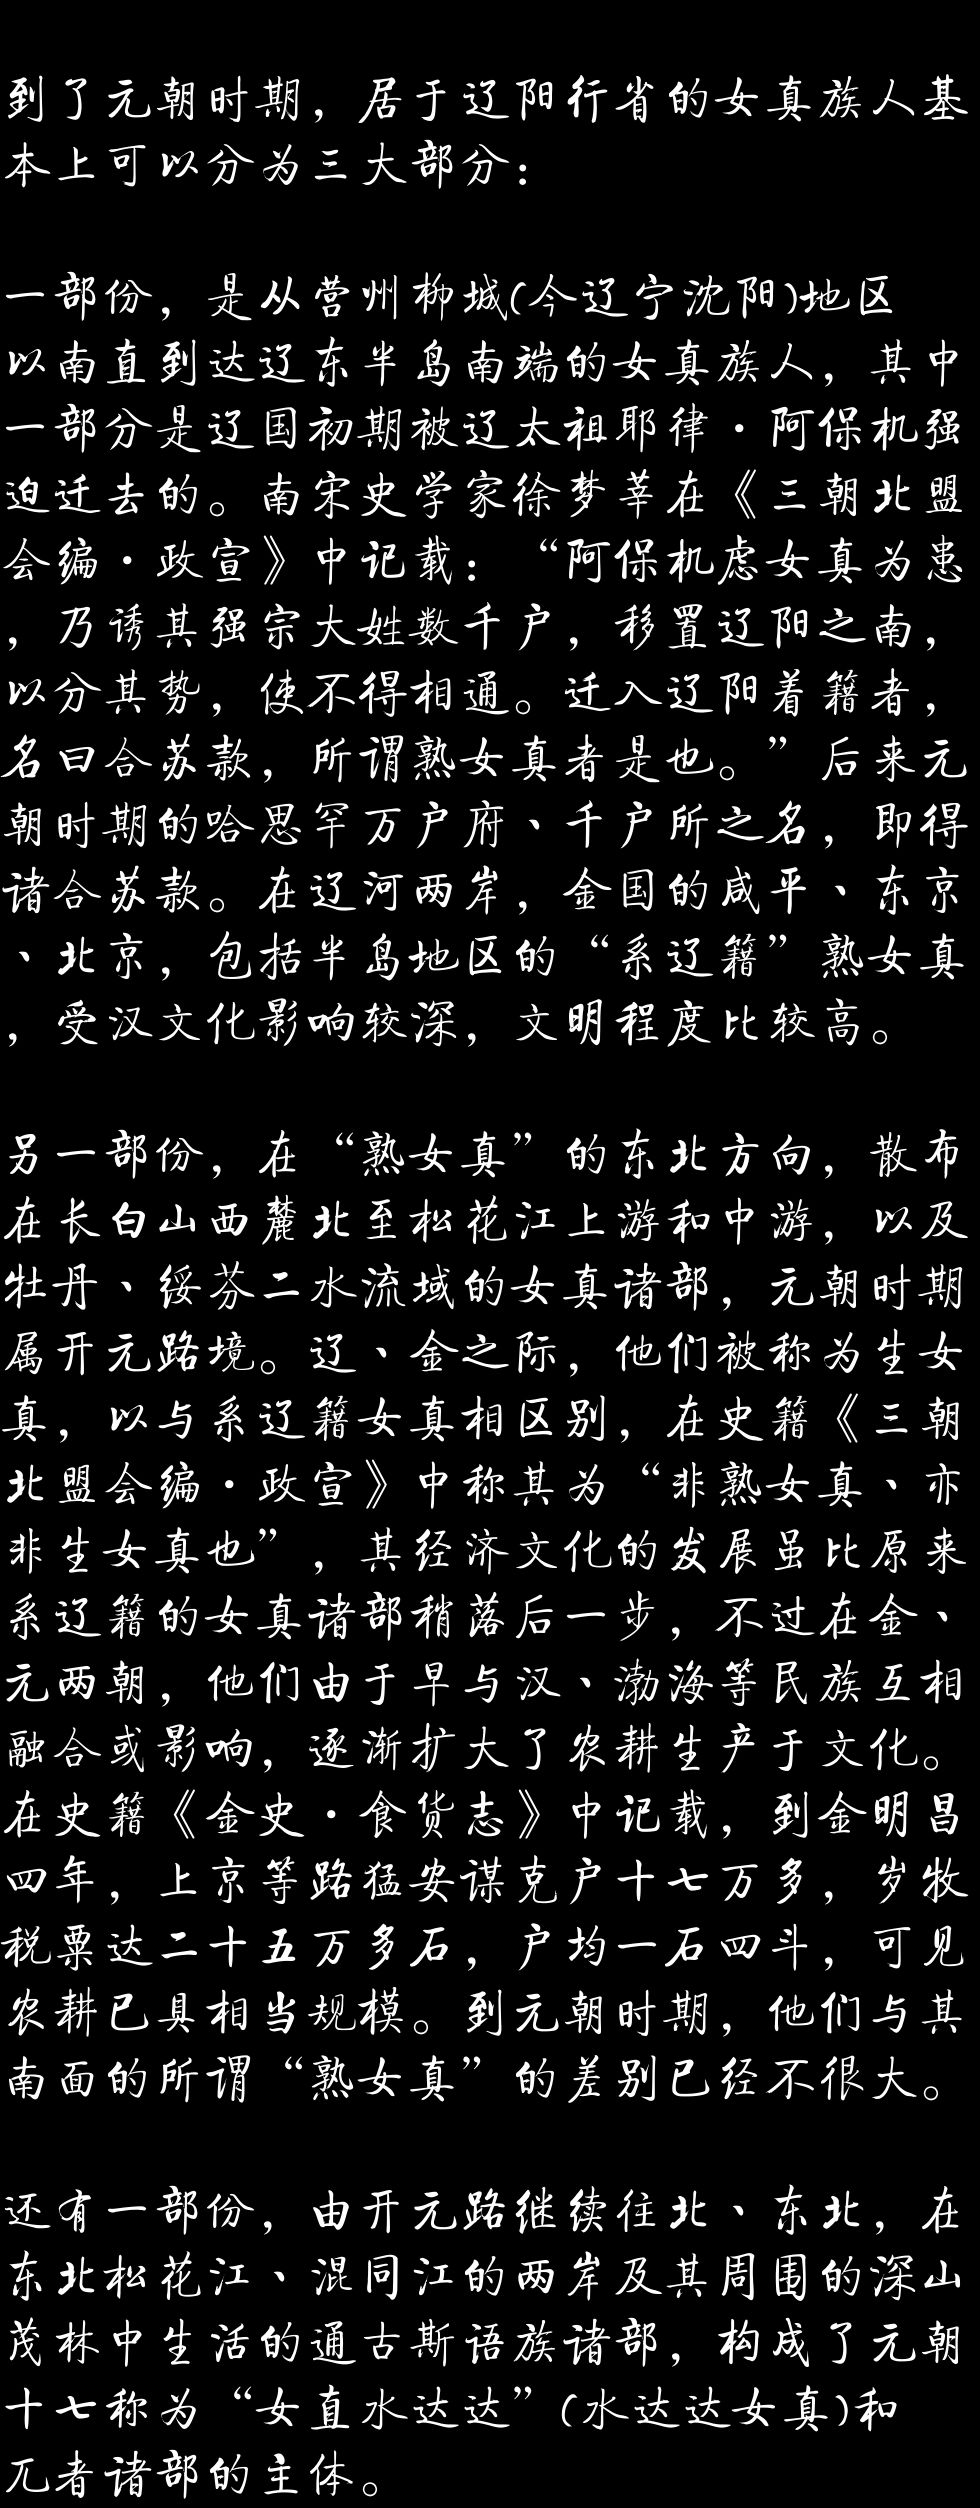 到了元朝时期，居于辽阳行省的女真族人基
本上可以分为三大部分：
一部份，是从营州柳城(今辽宁沈阳)地区
以南直到达辽东半岛南端的女真族人，其中
一部分是辽国初期被辽太祖耶律·阿保机强
迫迁去的。南宋史学家徐梦莘在《三朝北盟
会编·政宣》中记载：“阿保机虑女真为患
，乃诱其强宗大姓数千户，移置辽阳之南，
以分其势，使不得相通。迁入辽阳着籍者，
名曰合苏款，所谓熟女真者是也。”后来元
朝时期的哈思罕万户府、千户所之名，即得
诸合苏款。在辽河两岸，金国的咸平、东京
、北京，包括半岛地区的“系辽籍”熟女真
，受汉文化影响较深，文明程度比较高。
另一部份，在“熟女真”的东北方向，散布
在长白山西麓北至松花江上游和中游，以及
牡丹、绥芬二水流域的女真诸部，元朝时期
属开元路境。辽、金之际，他们被称为生女
真，以与系辽籍女真相区别，在史籍《三朝
北盟会编·政宣》中称其为“非熟女真、亦
非生女真也”，其经济文化的发展虽比原来
系辽籍的女真诸部稍落后一步，不过在金、
元两朝，他们由于早与汉、渤海等民族互相
融合或影响，逐渐扩大了农耕生产于文化。
在史籍《金史·食货志》中记载，到金明昌
四年，上京等路猛安谋克户十七万多，岁牧
税粟达二十五万多石，户均一石四斗，可见
农耕已具相当规模。到元朝时期，他们与其
南面的所谓“熟女真”的差别已经不很大。
还有一部份，由开元路继续往北、东北，在
东北松花江、混同江的两岸及其周围的深山
茂林中生活的通古斯语族诸部，构成了元朝
十七称为“女直水达达”(水达达女真)和
兀者诸部的主体。